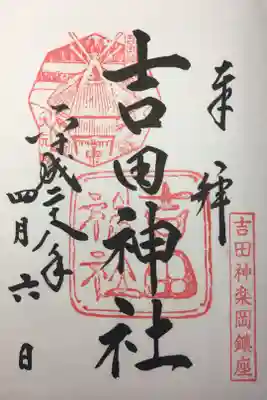 奉拝
吉田神楽岡鎮座
吉田神社
吉田神社
平成二十八年
四月六日